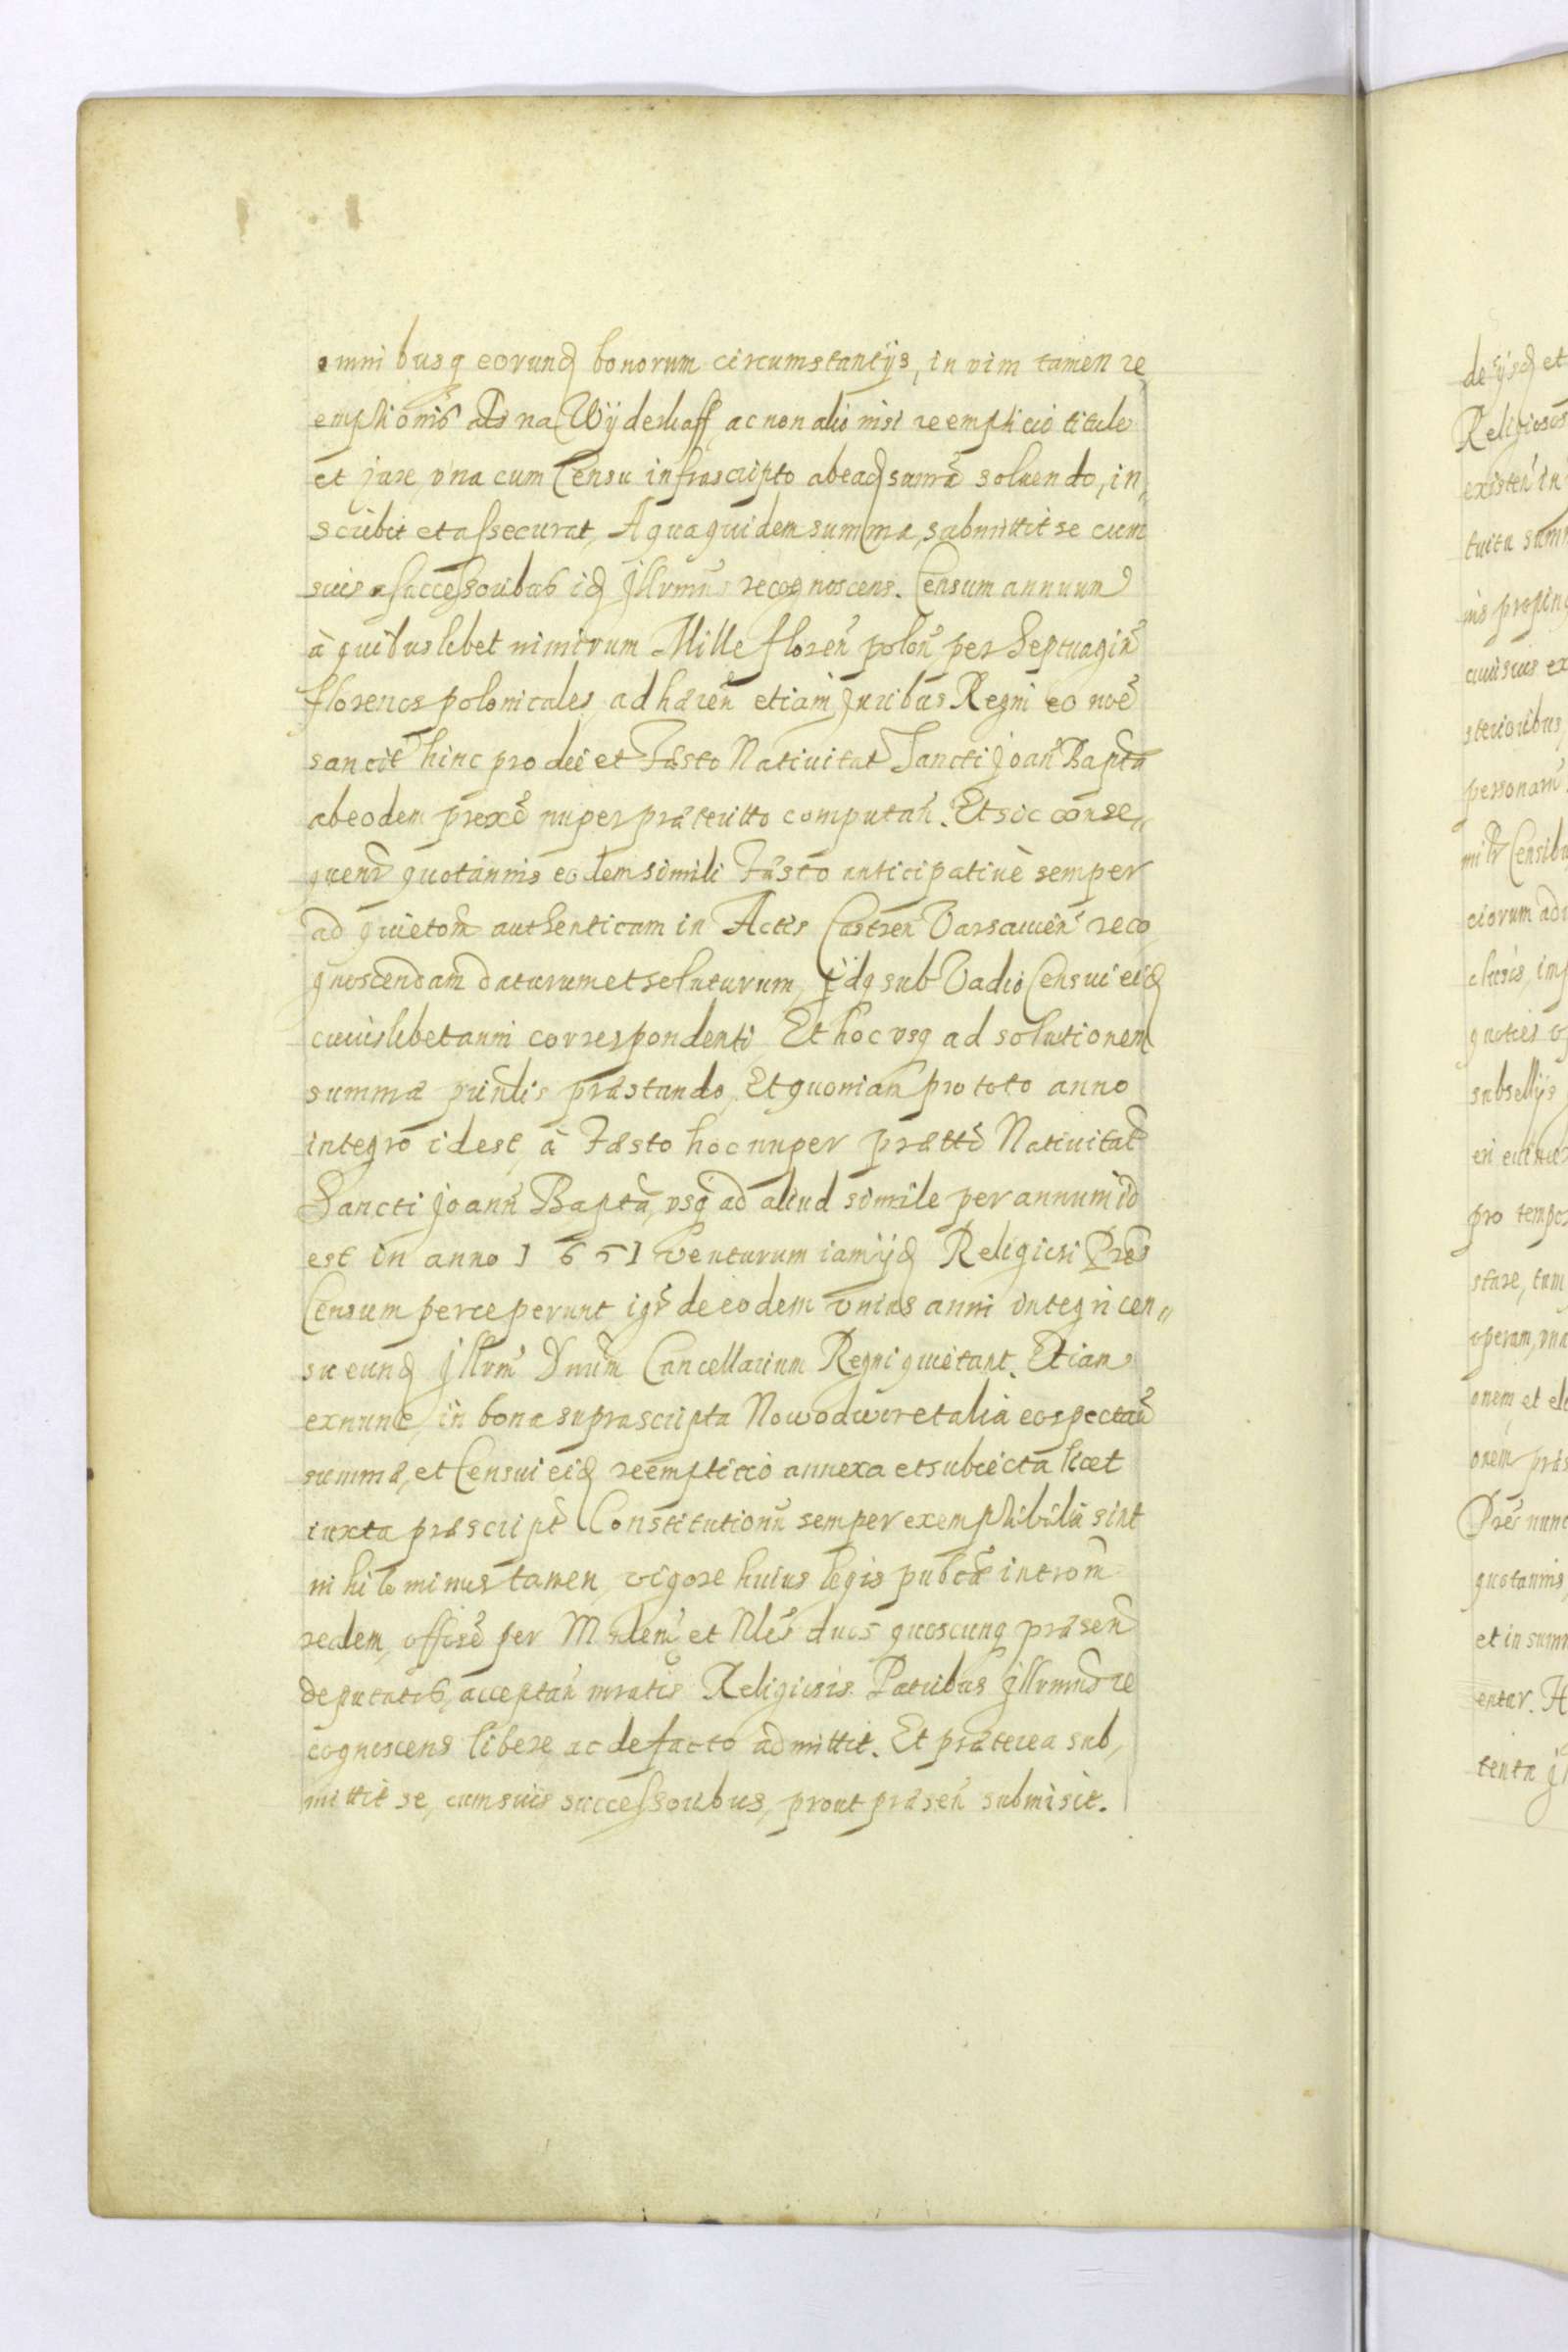 omnibusq eorund bonorum circumstantijs, in vim tamen re
emptionis als na Wÿderkaff, ac non alio nisi reempticio titulo
et jure, vna cum Censu infrascripto ab ead sumã soluendo, in„
scribit et assecurat, A qua quidem summa, submittit se cum
suis successoribus id Jllvmus recognoscens. Censum annuum
à quibuslibet nimirum Mille floreñ poloñ per Septuagiñ
florenos polonicales, adhæreñ etiam Juribus Regni eo noẽ
sancit hinc pro die et Fæsto Natiuitat Sancti Joañ Bapta
ab eodem proxẽ nuper præteritto computañ. Et sic conse„
quenr quotannis eodem simili Fæsto anticipatiuè semper
ad quietom authenticam in Actis Castreñ Varsauieñ reco
gnoscendam daturum et soluturum, Jdq sub Vadio Censui eid
cuiuslibet anni correspondenti, Et hoc vsq ad solutionem
summæ prinlis præstando, Et quoniam pro toto anno
integro id est, à Fæsto hoc nuper prætto Natiuitat
Sancti Joanñ Bapta, vsq ad aliud simile per annum id
est in anno 1651 venturum iam ijd Religiosi Pres
Censum perceperunt igr de eodem vnius anni integri cen„
su eund Jllvm Dnum Cancellarium Regni quietant. Etiam
exnunc, in bona suprascripta Nowodwor et alia eo spectañ
summæ, et Censui eid reempticio annexa et subiecta licet
iuxta præscript Constitutionũ semper exemptibilia sint
nihilominus tamen, vigore huius legis publcæ introm
realem, offise per Mnlem et Nles duos quoscunq præsen
deputatis, acceptañ mratis Religiosis Patribus Jllvmus re
cognoscens libere, ac de facto admittit. Et præterea sub„
mittit se, cum suis successoribus, prout præseñ submisit.
de ijsd et
Religiosos
existeñ in
tuita sum
nis propinq
sterioribus
personam
Censib
ciorum ad
clusis, imp
quoties
subsellijs
pro tempo
stare, tum
operam, vna
onem et el
onem præs
Pres nunc
quotannis
et in sum
entur. H
tenta Jl